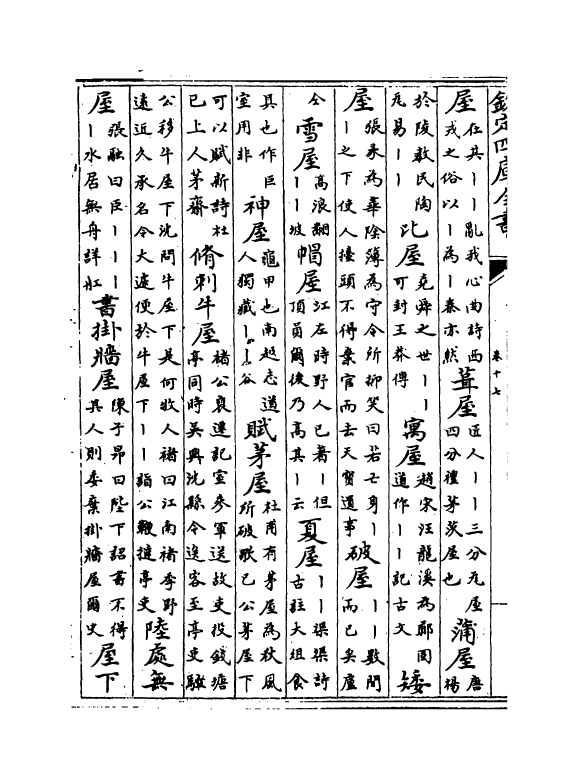 欽定四庫全書
卷十七
屋 在其丨丨亂我心曲詩西戎之俗以丨為丨秦亦然 葺屋 匠人丨丨三分瓦屋四分禮茅茨屋也 蒲屋 唐楊
於陵教民陶瓦易丨丨 比屋 堯舜之世丨丨可封王莽傳 寓屋 趙宋汪龍溪為郡圃道作丨丨記古文 矮
屋 張彖為華陰簿為守令所抑笑曰若七身丨丨之下使人擡頭不得棄官而去天寶遺事 破屋 丨丨數間而已矣盧
仝 雪屋 高浪翻丨丨坡 帽屋 江左時野人已著丨但頂員爾後乃高其丨云 夏屋 丨丨渠渠詩古註大俎食
具也作巨室用非 神屋 龜甲也南越志道人獨藏丨丨谷 賦茅屋 杜甫有茅屋為秋風所破歌已公茅屋下
可以賦新詩杜已上人茅齋 脩刺牛屋 褚公裒遷記室參軍送故吏投錢塘亭同時吳興沈縣令逡客至亭吏驅
公移牛屋下沈問牛屋下是何牧人褚曰江南褚季野遠近久承名令大遽便於牛屋下丨丨詣公鞭撻亭吏 陸處無
屋 張融曰臣丨丨丨丨水居無舟詳舡 書掛牆屋 陳子昂曰陛下詔書不得其人則委棄掛牆屋爾史 屋下